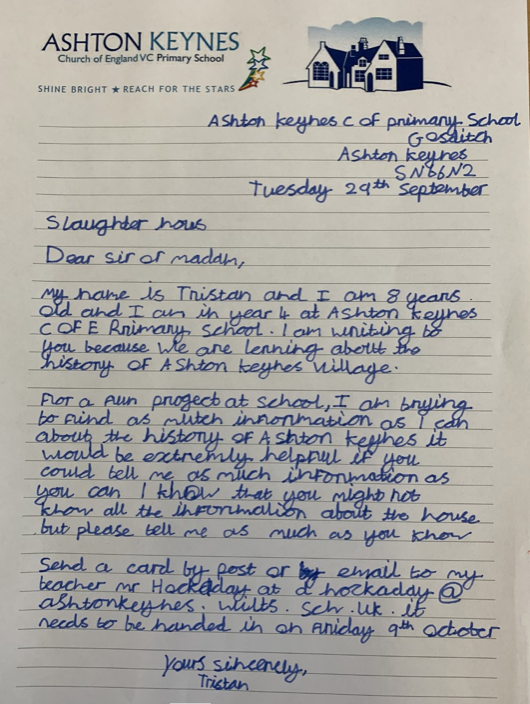 ASHTON KEYNES
Church of England VC Primary School
SHINE BRIGHT ★ REACH FOR THE STARS
Ashton keynes C of primary School
Gosditch
Ashton keynes
SN66NZ
Tuesday 29th September
Slaughter hous
Dear sir or madam,
my name is Tristan and I am 8 years
old and I am in year 4 at Ashton keynes
C OF E Primary school. I am writing to
you because we are lerning about the
history of Ashton keynes village.
For a fun progect at school, I am trying
to find as mutch information as I can
about the history of Ashton keynes it
would be extremly helpful if you
could tell me as much information as
you can I know that you might not
know all the information about the house
but please tell me as much as you know
Send a card by post or by email to my
teacher mr Hockaday at d hockaday @
ashtonkeynes. wilts. sch. uk. it
needs to be handed in on Friday 9th october
yours sincerely,
Tristan